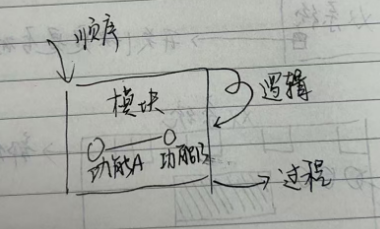 顺序
模块
逻辑
功能A 功能B
过程